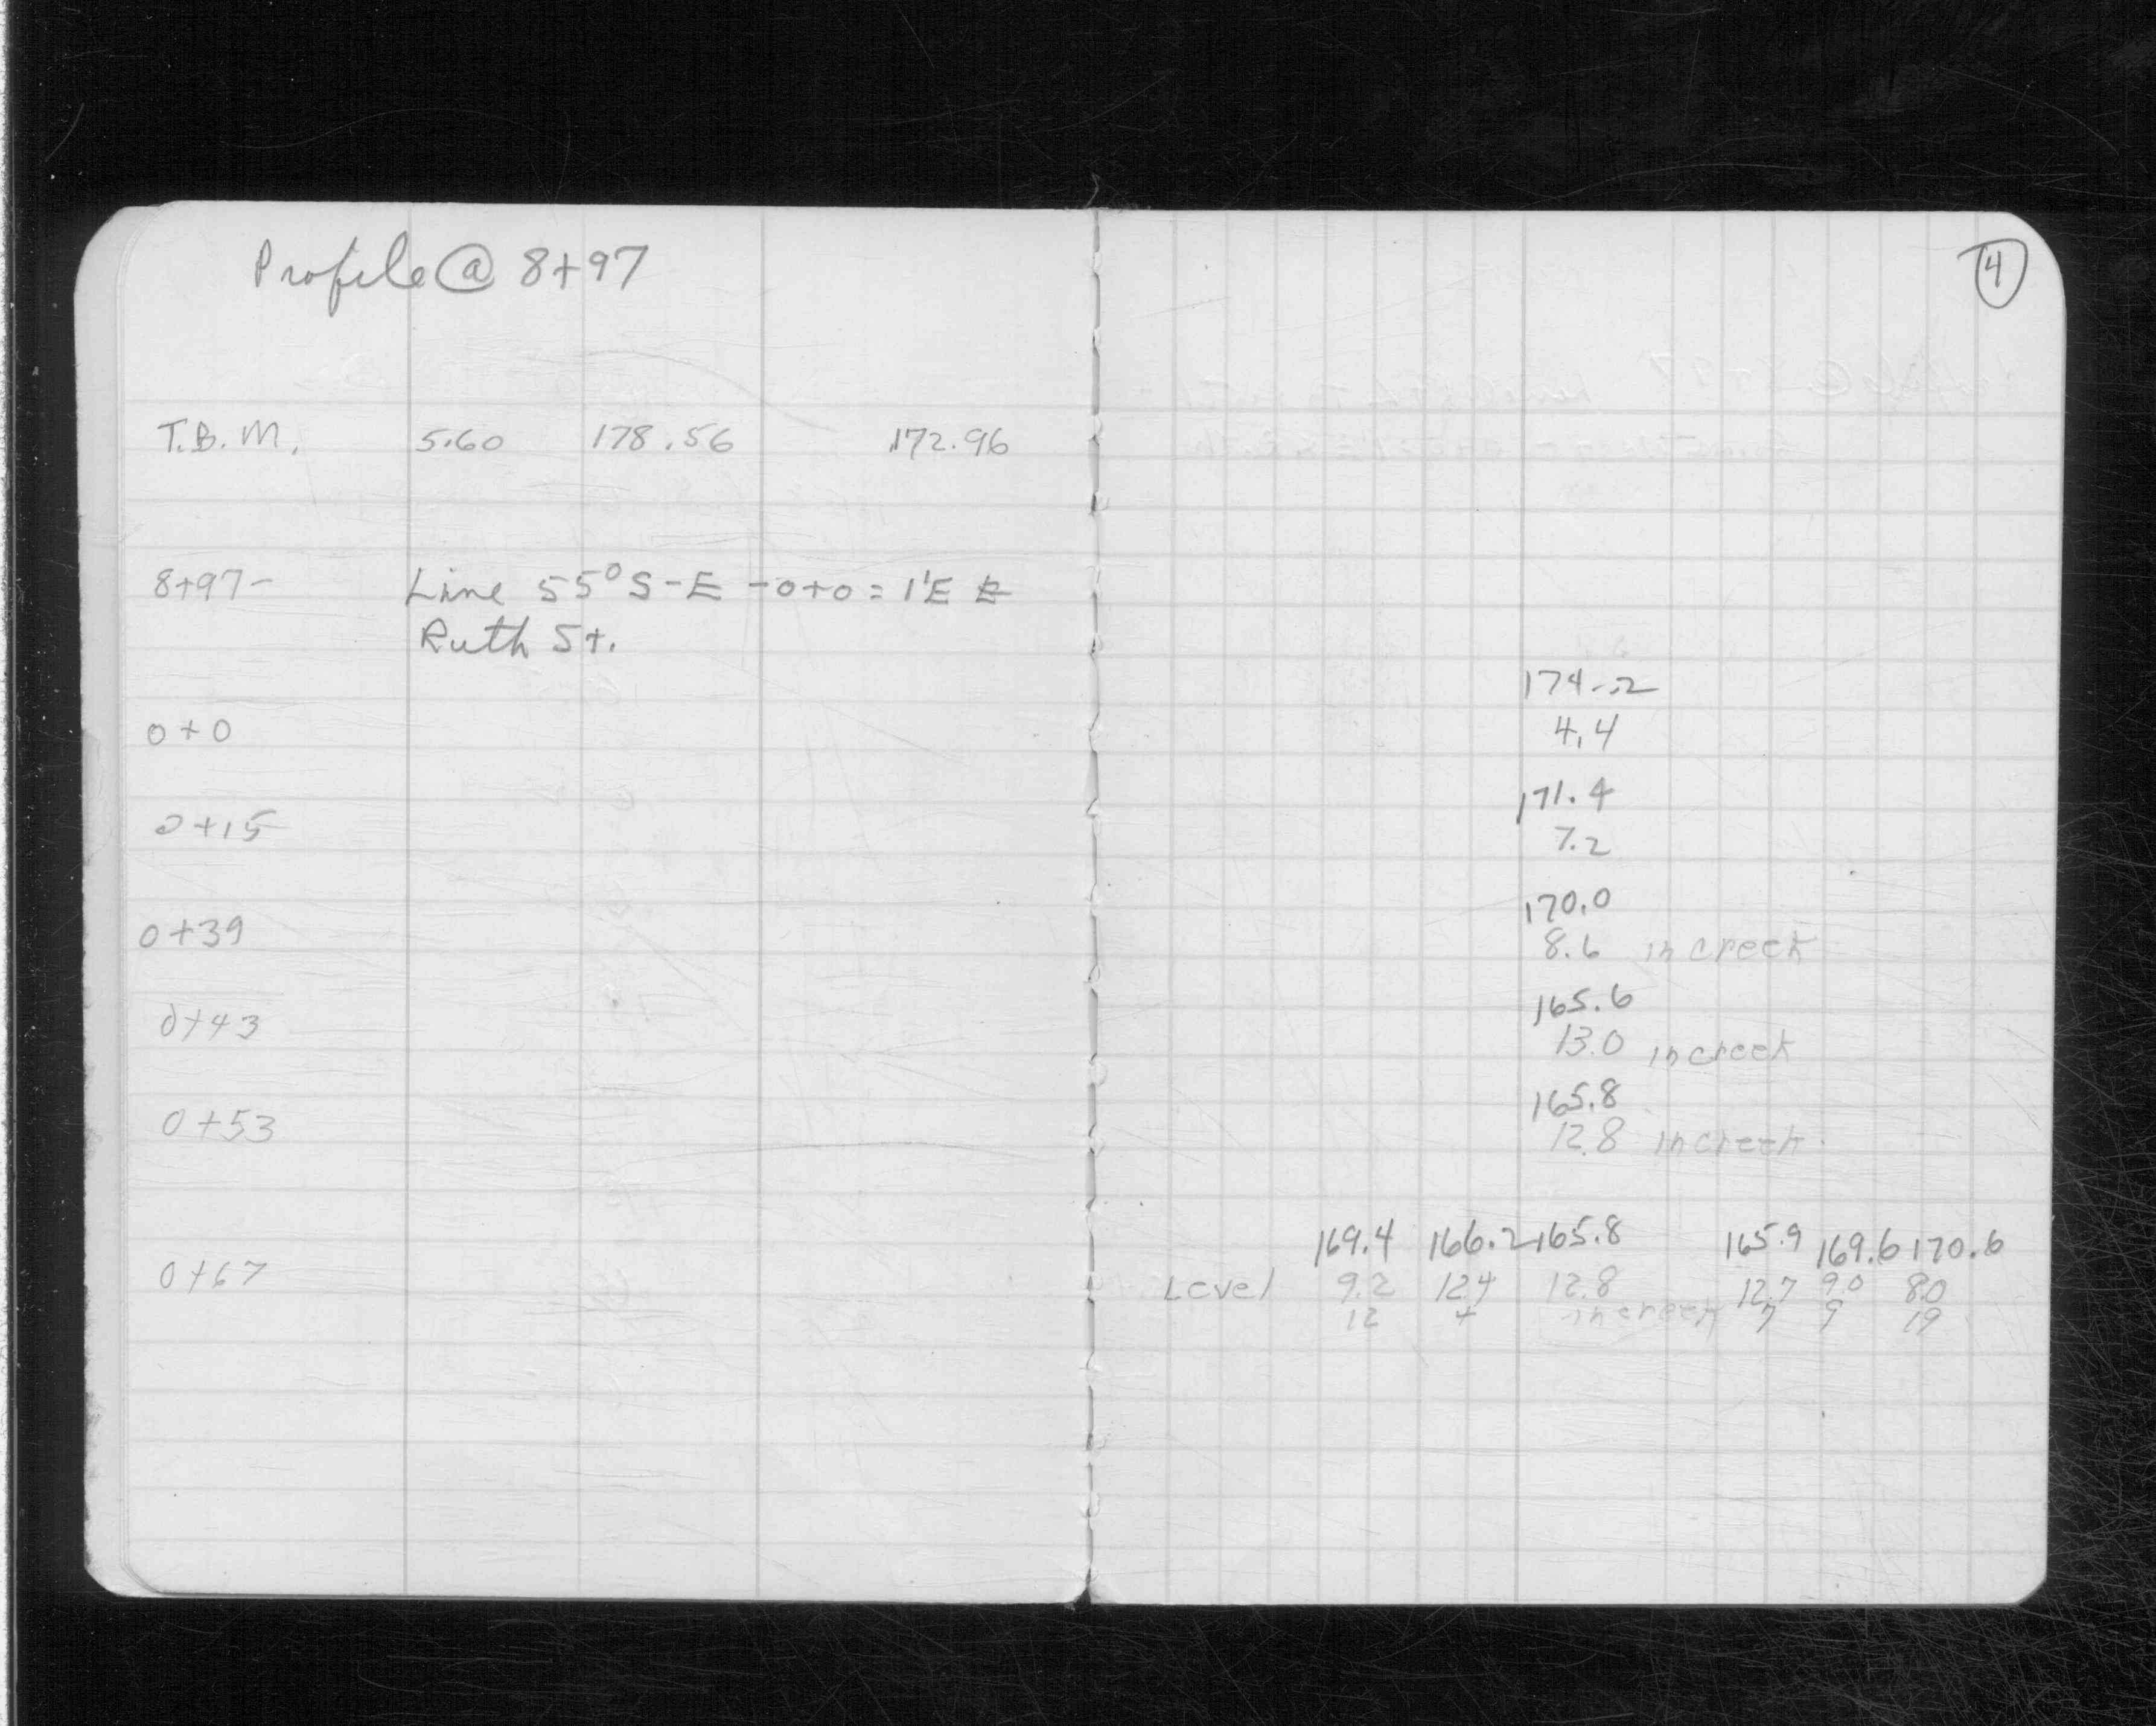 Profile @ 8+97
T.B.M. 5.60 178.56 172.96
8+97- Line 55° S-E -0+0 = 1'E
Ruth St.
0+0
0+15
0+39
0+43
0+53
0+67
4
174.2
4.4
171.4
7.2
170.0
8.6 in creek
165.6
13.0 in creek
165.8
12.8 in creek
169.4 166.2 165.8 165.9 169.6 170.6
Level 9.2 12.4 12.8 12.7 9.0 8.0
12 4 in creek 7 9 19